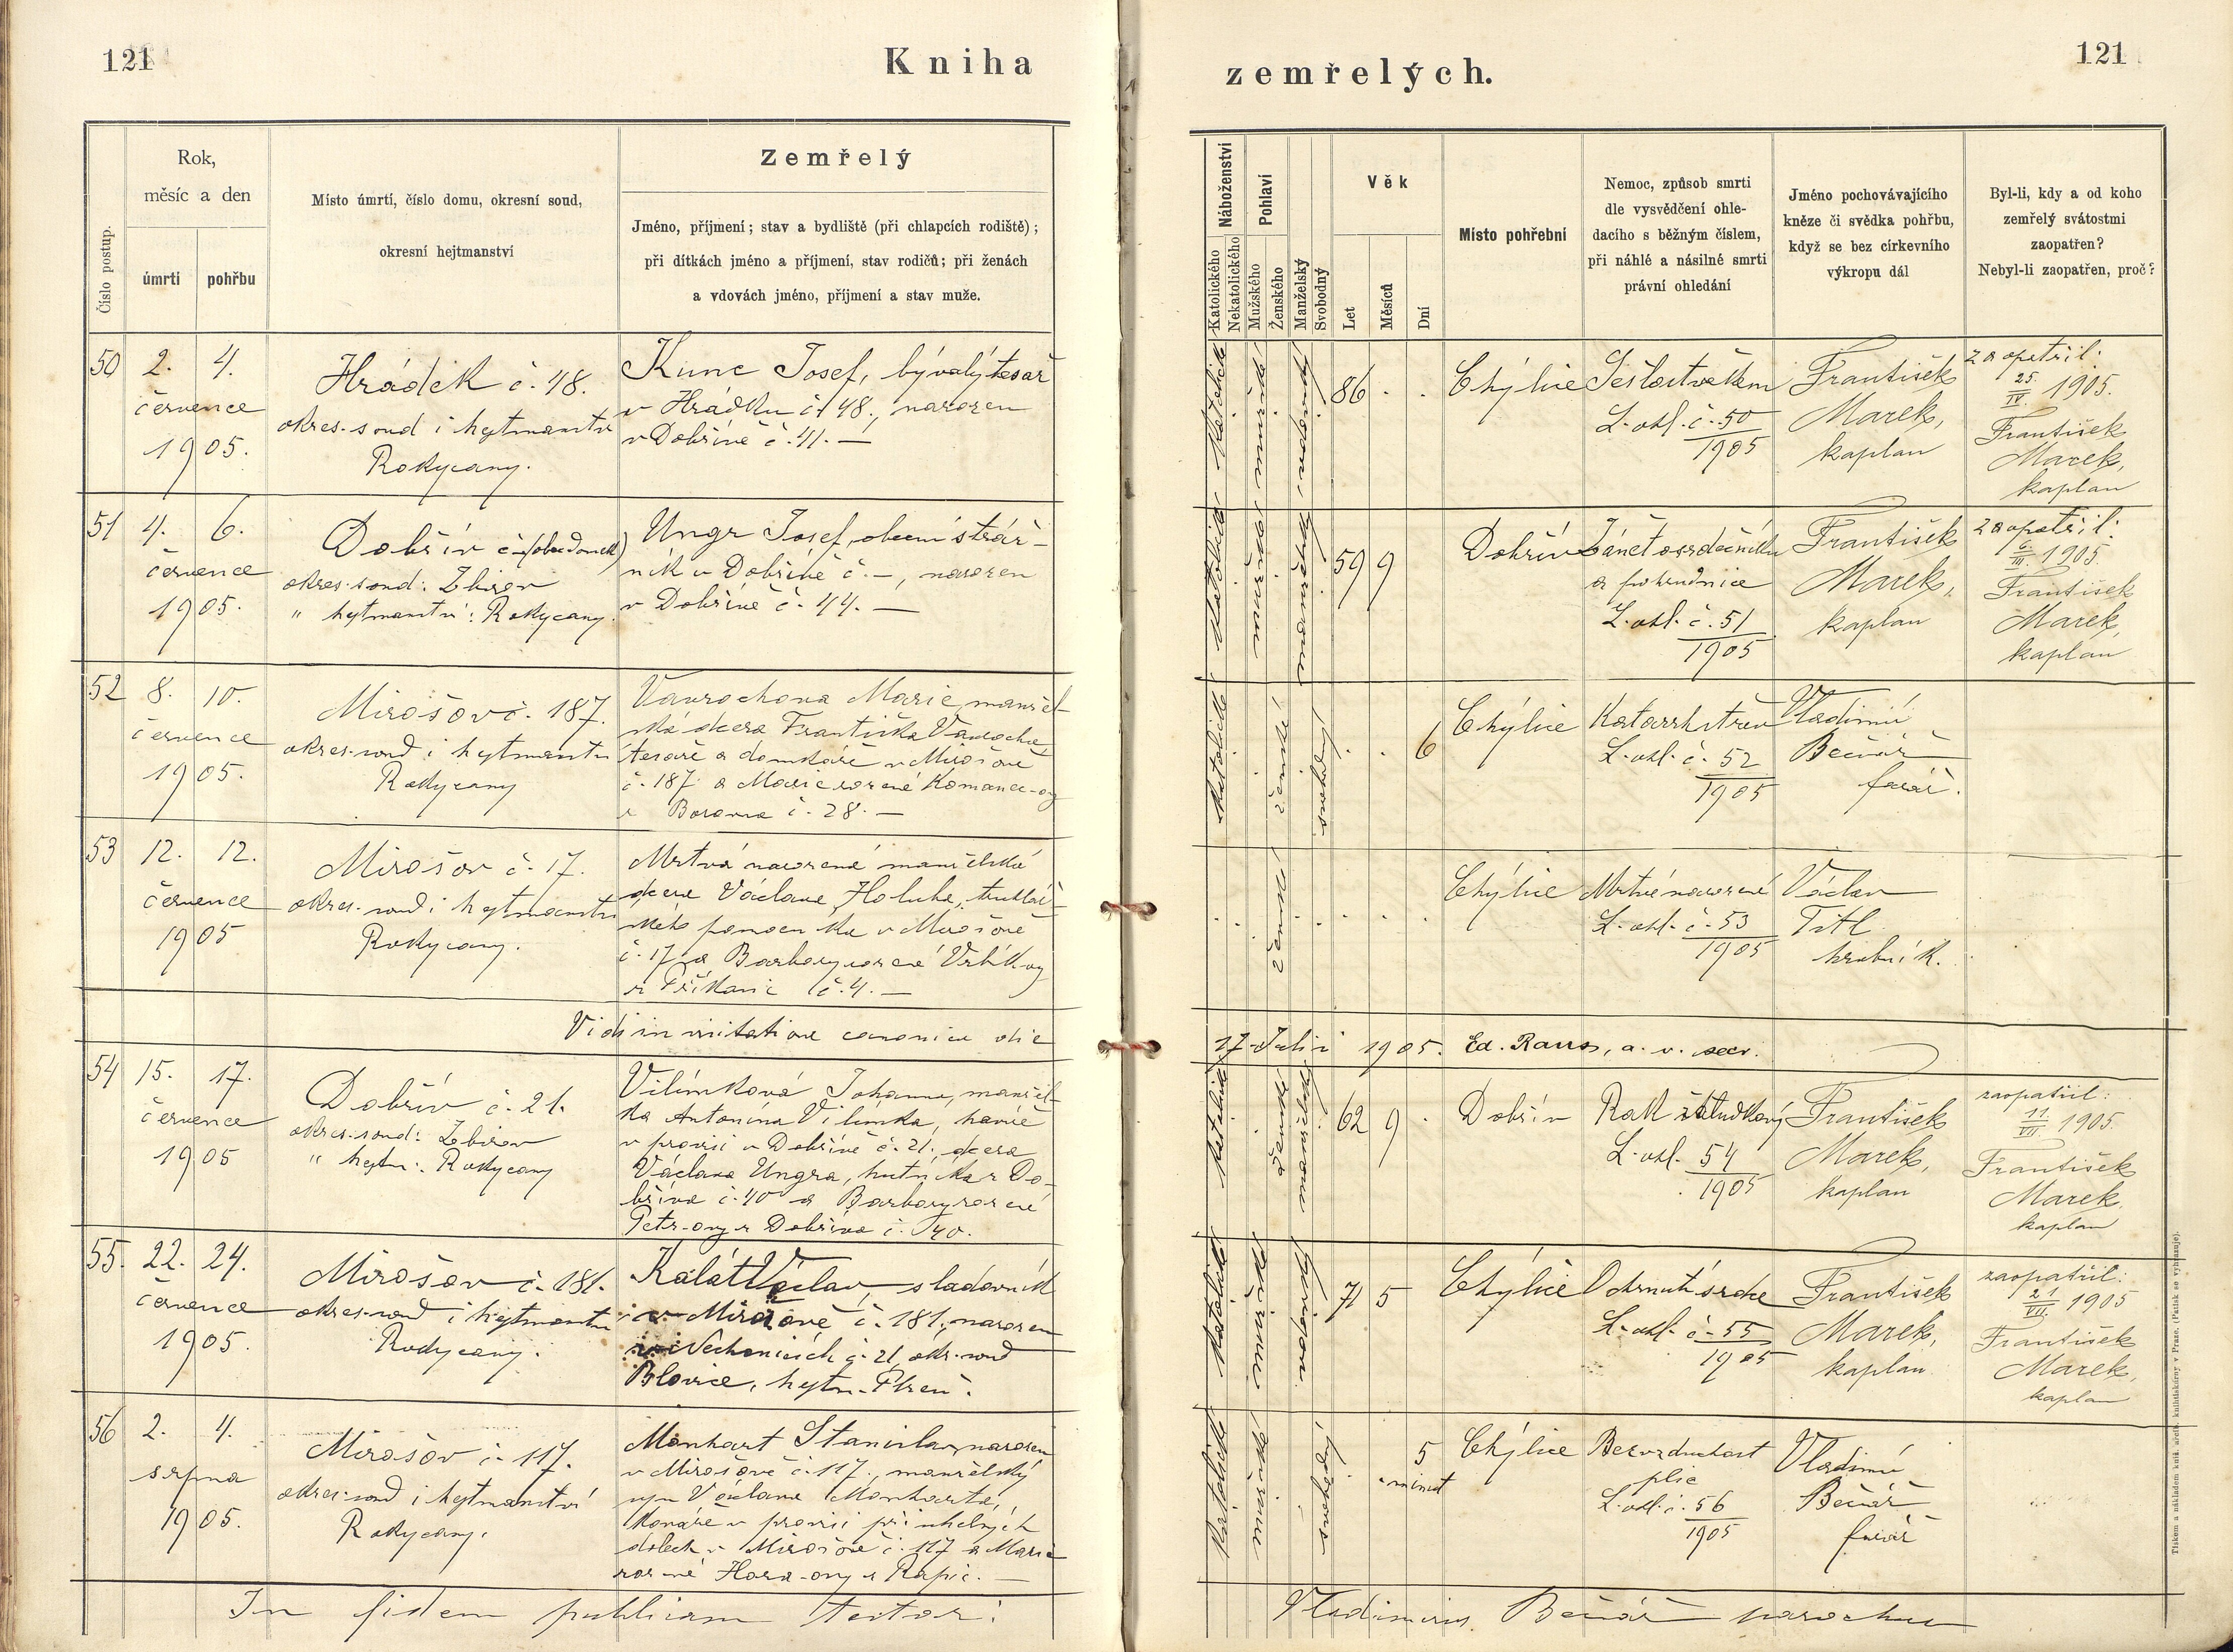 121
Kniha
zemřelých.
121
Číslo postup.
Rok,
měsíc a den
úmrtí
pohřbu
Místo úmrtí, číslo domu, okresní soud,
okresní hejtmanství
Zemřelý
Jméno, příjmení; stav a bydliště (při chlapcích rodiště);
při dítkách jméno a příjmení, stav rodičů; při ženách
a vdovách jméno, příjmení a stav muže.
Náboženství
Katolického
Nekatolického
Pohlaví
Mužského
Ženského
Manželský
Svobodný
Věk
Let
Měsíců
Dní
Místo pohřební
Nemoc, způsob smrti
dle vysvědčení ohle-
dacího s běžným číslem,
při náhlé a násilné smrti
právní ohledání
Jméno pochovávajícího
kněze či svědka pohřbu,
když se bez církevního
výkropu dál
Byl-li, kdy a od koho
zemřelý svátostmi
zaopatřen?
Nebyl-li zaopatřen, proč?
50
2. 4.
července
1905.
Hrádek č. 48.
okres. soud i hejtmanství
Rokycany.
Kunc Josef, bývalý tesař
v Hrádku č. 48., narozen
v Dobřívě č. 41. —
katolické
mužské
vdovný
86 . .
Chýlice
Sešlost věkem
L. ohl. č. 50
1905
František
Marek,
kaplan
zaopatřil:
25.
IV. 1905.
František
Marek,
kaplan
51
4. 6.
července
1905.
Dobřív č.
okres. soud: Zbirov
" hejtmanství: Rokycany.
Ungr Josef, obecní stráž-
ník v Dobřívě č. –, narozen
v Dobřívě č. 44. —
katolické
mužské
manželský
59 9
Dobřív
Zánět osrdečníku
a pohrudnice
L. ohl. č. 51
1905
František
Marek,
kaplan
zaopatřil:
6.
III. 1905.
František
Marek,
kaplan
52
8. 10.
července
1905.
Mirošov č. 187.
okres. soud i hejtmanství
Rokycany
Vavrochova Marie, manžel-
ská dcera Františka Vavrocha,
tesaře a domkáře v Mirošově
č. 187 a Marie rozené Komanec-ovy
z Borovna č. 28. —
katolické
ženské
svobodný
. . 6
Chýlice
Katarrh střev
L. ohl. č. 52
1905
Vladimír
Bečvář
farář.
53
12. 12.
července
1905
Mirošov č. 17.
okres. soud i hejtmanství
Rokycany.
Mrtvě narozená manželská
dcera Václava Holuba, truhlář-
ského pomocníka v Mirošově
č. 17 a Barbory rozené Vrbíkovy
z Příkosic č. 4. —
ženské
Chýlice
Mrtvě narozené
L. ohl. č. 53
1905
Václav
Titl
hrobník.
Vidi in visitatione canonica die
17 Julii 1905. Ed. Raus, a. v. secr.
54
15. 17.
července
1905
Dobřív č. 21.
okres. soud: Zbirov
" hejtm.: Rokycany
Vilímková Johanna, manžel-
ka Antonína Vilímka, havíře
v provisi v Dobřívě č. 21., dcera
Václava Ungra, hutníka z Do-
bříva č. 40 a Barbory rozené
Petr-ovy z Dobříva č. 40.
katolické
ženské
manželský
62 9 .
Dobřív
Rak žaludkový
L. ohl. 54
1905
František
Marek,
kaplan
zaopatřil:
11
VII. 1905.
František
Marek,
kaplan
55.
22. 24.
července
1905.
Mirošov č. 181.
okres. soud i hejtmanství
Rokycany.
Kalát Václav, sladovník
v Mirošově č. 181., narozen
v Nechanicích č. 21, okr. soud
Blovice, hejtm. Plzeň.
katolické
mužské
vdovný
71 5
Chýlice
Ochrnutí srdce
L. ohl. č. 55
1905
František
Marek,
kaplan.
zaopatřil:
21
VII. 1905
František
Marek,
kaplan
56
2. 4.
srpna
1905.
Mirošov č. 117.
okres. soud i hejtmanství
Rokycany.
Monhart Stanislav, narozen
v Mirošově č. 117., manželský
syn Václava Monharta,
kováře v provisi při uhelných
dolech v Mirošově č. 117 a Marie
rozené Hora-ovy z Rapic. —
katolické
mužské
svobodný
5
minut
Chýlice
Bezvzdušnost
plic
L. ohl. č. 56
1905
Vladimír
Bečvář
farář
In fidem publicam testor:
Vladimirus Bečvář parochus
Tiskem a nákladem knih. arcib. knihtiskárny v Praze. (Patisk se vyhrazuje).